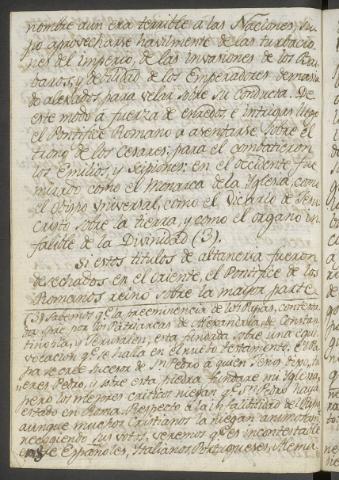 nombre aun era terrible a las Naciones, su-
po aprovecharse havilmente de las turbacio-
nes del Imperio, de las invasiones de los Bar-
baros, y devilidad de los Emperadores demasia-
do alexados para velar sobre su conducta. De
este modo a fuerza de enredos e intrigas llegó
el Pontifice Romano a asentarse sobre el
trono de los Cesares; para el combatieron
los Emilios, y Scipiones: en el occidente fue
mirado como el Monarca de la Iglesia, como
el Obispo Universal, como el Vicario de Jesu
Cristo sobre la tierra, y como el organo in-
falible de la Divinidad (3).
Si estos titulos de altaneria fueron
desechados en el Oriente, el Pontifice de los
Romanos reinó sobre la maior parte
(3) Sabemos qe. la preeminencia de los Papas,
siempre por los Patriarcas de Alexandria, de Constan-
tinopla, y Jerusalen, esta fundada sobre una equi-
vocacion qe. se halla en el nuevo testamento. El Pa-
pa se cree sucesor de Sn. Pedro a quien Jesus dijo, tu
eres Pedro, y sobre esta piedra fundaré mi Iglesia;
pero los mejores criticos niegan qe. Sn. Pedro haya
estado en Roma. Respecto a la infalibilidad del Papa
aunque muchos Cristianos la niegan
sus votos, veremos qe. es incontestable
entre Españoles, Italianos, Portugueses, Alema-